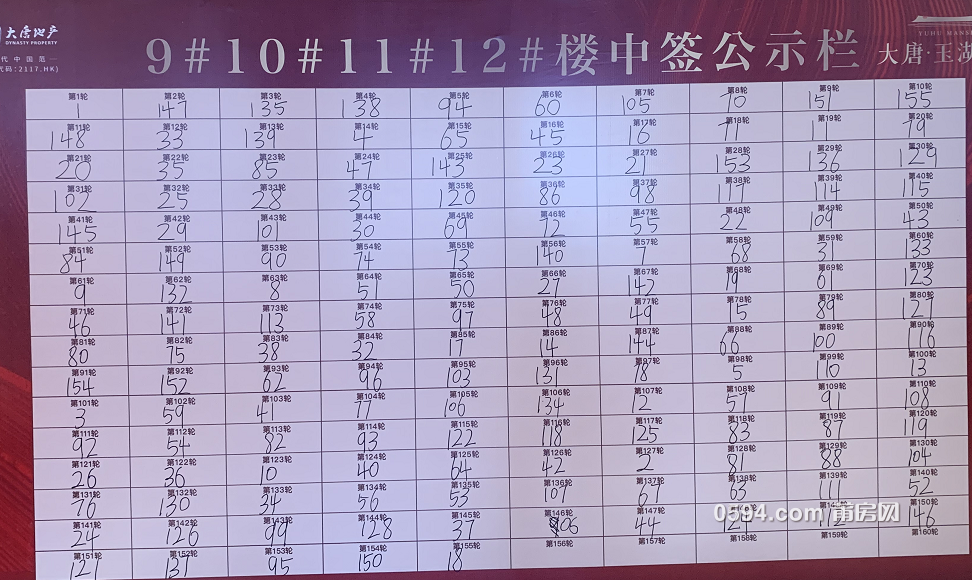 大唐地产
DYNASTY PROPERTY
代中国范
代码:2117.HK)
9#10#11#12#楼中签公示栏
YUHU MANS
大唐·玉湖
第1轮 第2轮 第3轮 第4轮 第5轮 第6轮 第7轮 第8轮 第9轮 第10轮
1 147 135 138 94 60 105 70 151 155
第11轮 第12轮 第13轮 第14轮 第15轮 第16轮 第17轮 第18轮 第19轮 第20轮
148 33 139 4 65 45 16 71 11 79
第21轮 第22轮 第23轮 第24轮 第25轮 第26轮 第27轮 第28轮 第29轮 第30轮
20 35 85 47 143 23 21 153 136 129
第31轮 第32轮 第33轮 第34轮 第35轮 第36轮 第37轮 第38轮 第39轮 第40轮
102 25 28 39 120 86 98 117 114 115
第41轮 第42轮 第43轮 第44轮 第45轮 第46轮 第47轮 第48轮 第49轮 第50轮
145 29 101 30 69 72 55 22 109 43
第51轮 第52轮 第53轮 第54轮 第55轮 第56轮 第57轮 第58轮 第59轮 第60轮
84 149 90 74 73 140 7 68 31 133
第61轮 第62轮 第63轮 第64轮 第65轮 第66轮 第67轮 第68轮 第69轮 第70轮
9 132 8 51 50 27 142 19 61 123
第71轮 第72轮 第73轮 第74轮 第75轮 第76轮 第77轮 第78轮 第79轮 第80轮
46 141 113 58 97 48 49 15 89 127
第81轮 第82轮 第83轮 第84轮 第85轮 第86轮 第87轮 第88轮 第89轮 第90轮
80 75 38 32 17 14 144 66 100 116
第91轮 第92轮 第93轮 第94轮 第95轮 第96轮 第97轮 第98轮 第99轮 第100轮
154 152 62 96 103 131 78 5 110 13
第101轮 第102轮 第103轮 第104轮 第105轮 第106轮 第107轮 第108轮 第109轮 第110轮
3 59 41 77 106 134 12 57 91 108
第111轮 第112轮 第113轮 第114轮 第115轮 第116轮 第117轮 第118轮 第119轮 第120轮
92 54 82 93 122 118 125 83 87 119
第121轮 第122轮 第123轮 第124轮 第125轮 第126轮 第127轮 第128轮 第129轮 第130轮
26 36 10 40 64 42 2 81 88 104
第131轮 第132轮 第133轮 第134轮 第135轮 第136轮 第137轮 第138轮 第139轮 第140轮
76 130 34 56 53 107 67 63 111 52
第141轮 第142轮 第143轮 第144轮 第145轮 第146轮 第147轮 第150轮
24 126 99 128 37 44 146
0594.com 莆房网
第151轮 第152轮 第153轮 第154轮 第155轮 第156轮 第157轮 第158轮 第159轮 第160轮
121 137 95 150 18